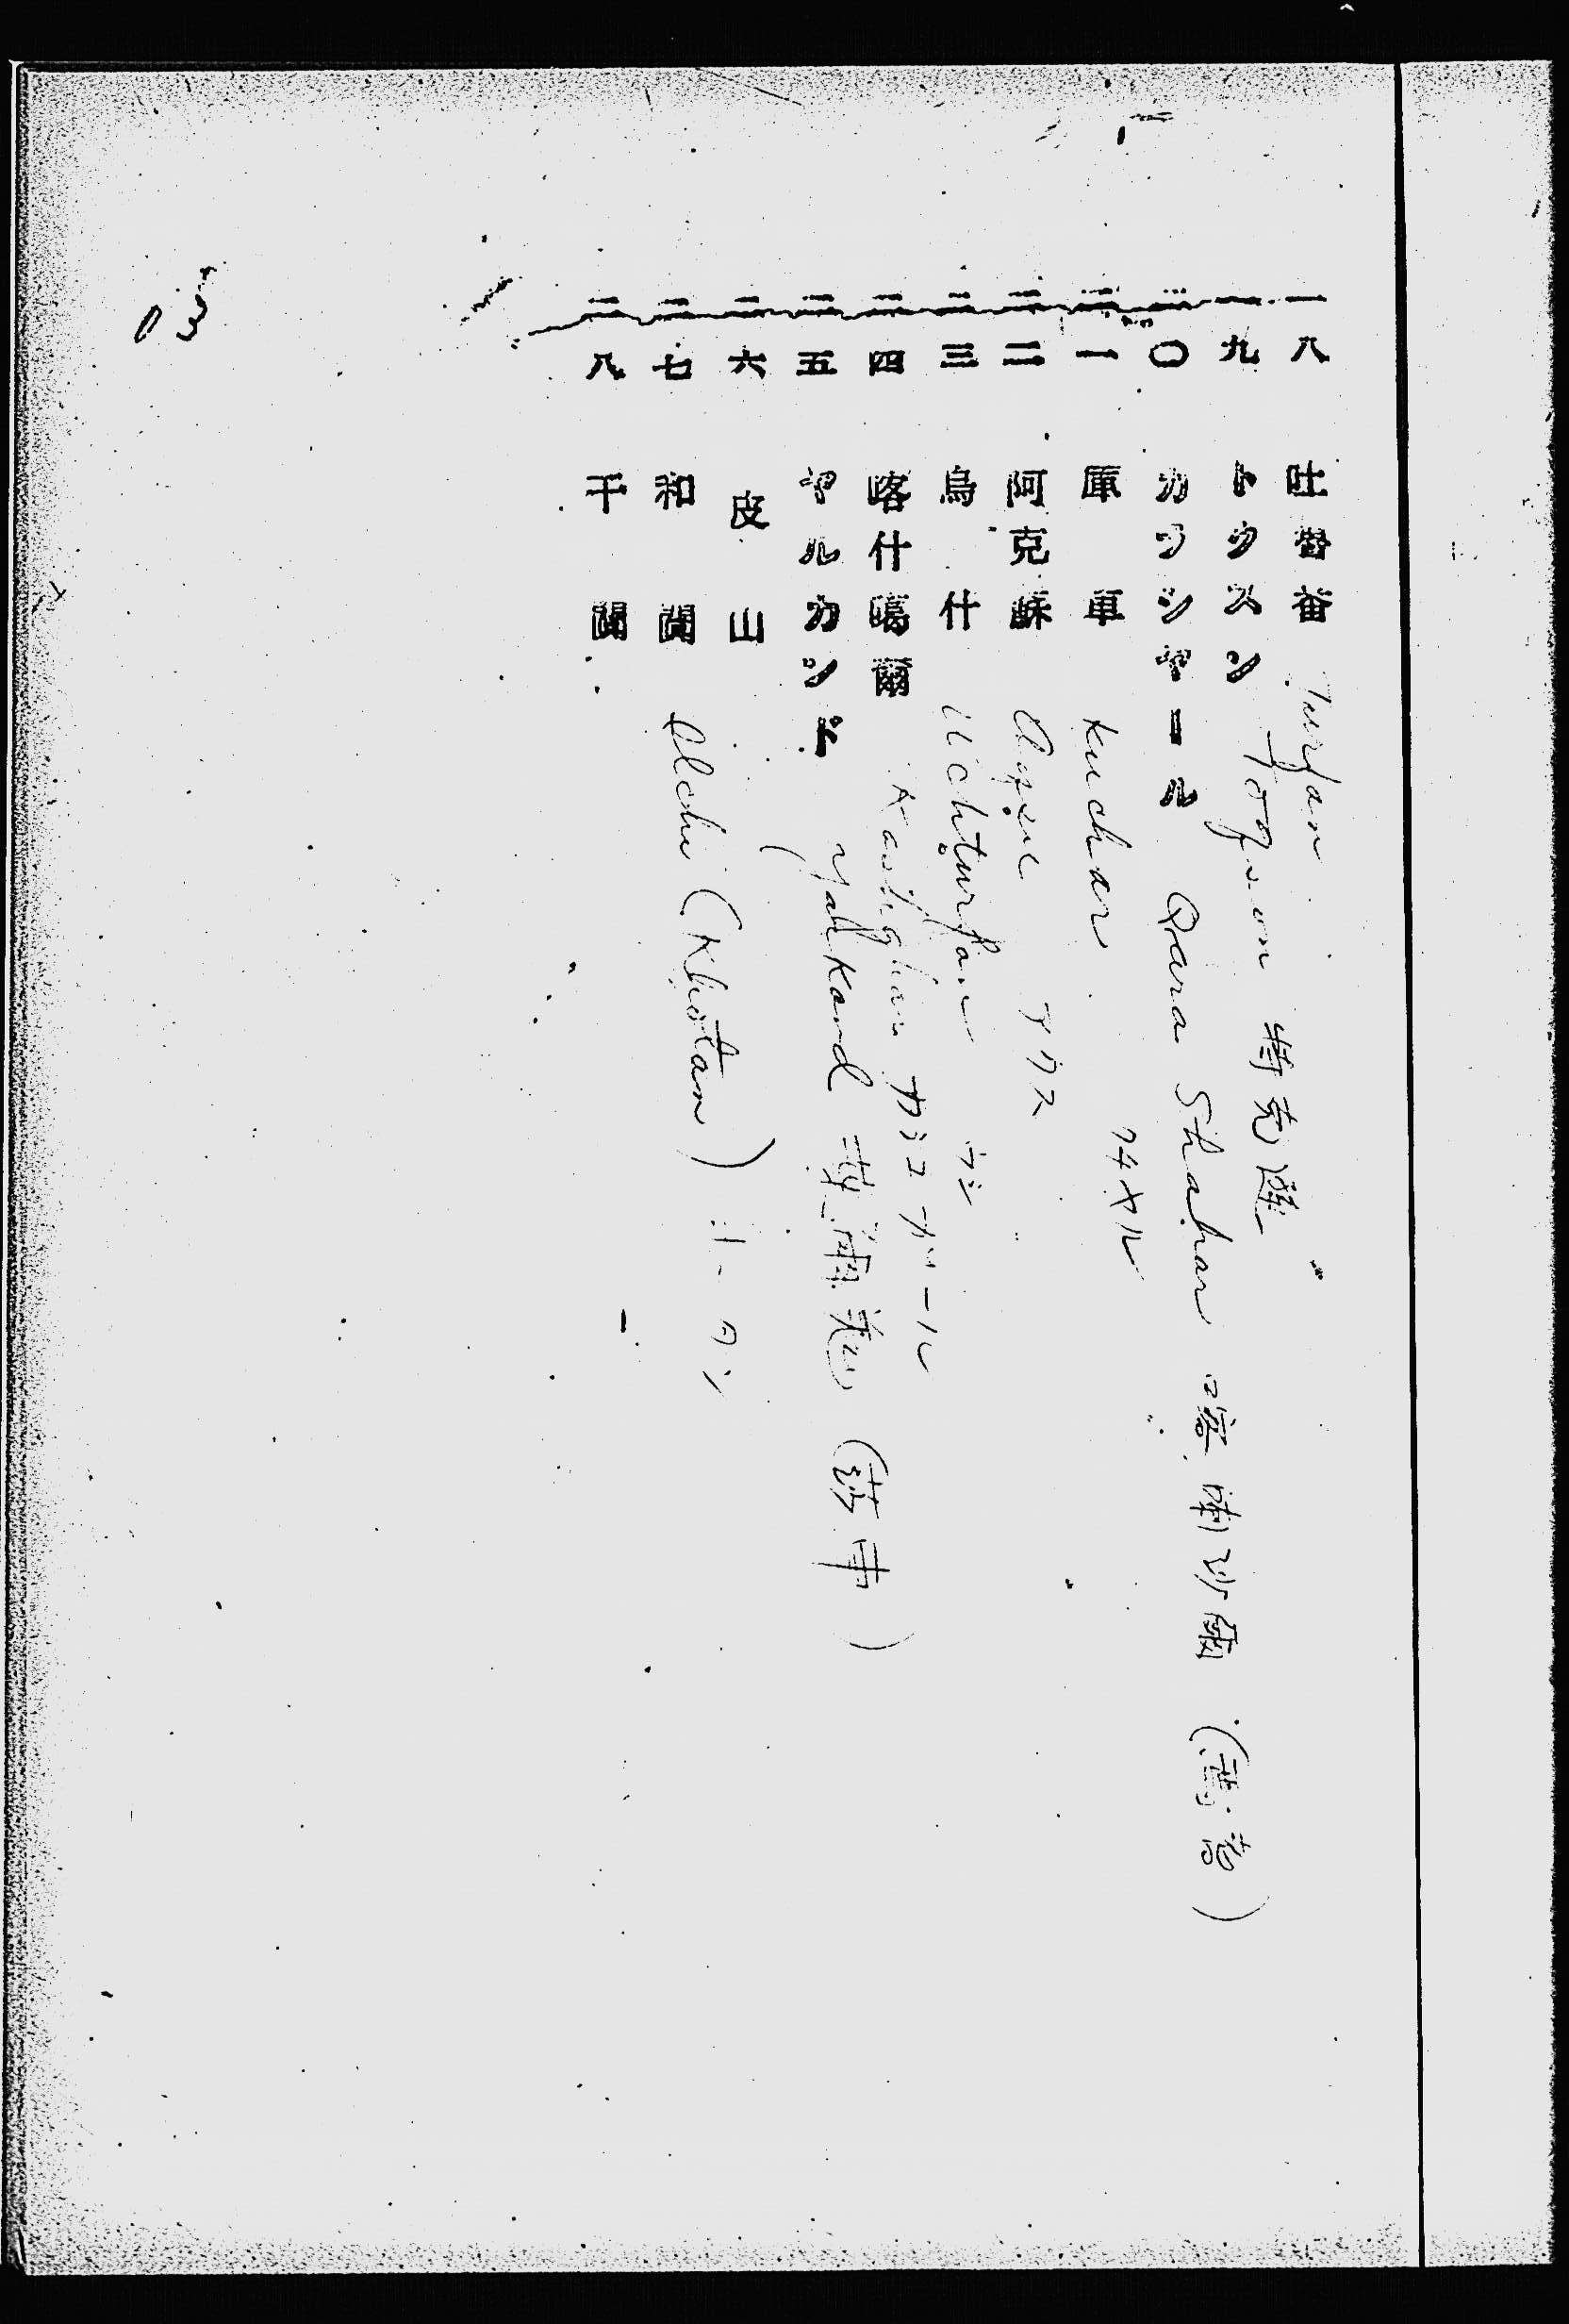 一八 吐魯番 Turfan
一九 トクスン Toqsun 特克遜
二〇 カラシヤール Qara Shahar 喀喇沙爾 (焉耆)
二一 庫車 Kuchar クチヤル
二二 阿克蘇 Aqsu アクス
二三 烏什 Uchturfan ウシ
二四 喀什噶爾 Kashghar カシユガール
二五 ヤルカンド Yarkand 葉爾羌 (莎車)
二六 皮山
二七 和闐 Ilchi (Khotan) ホータン
二八 于闐